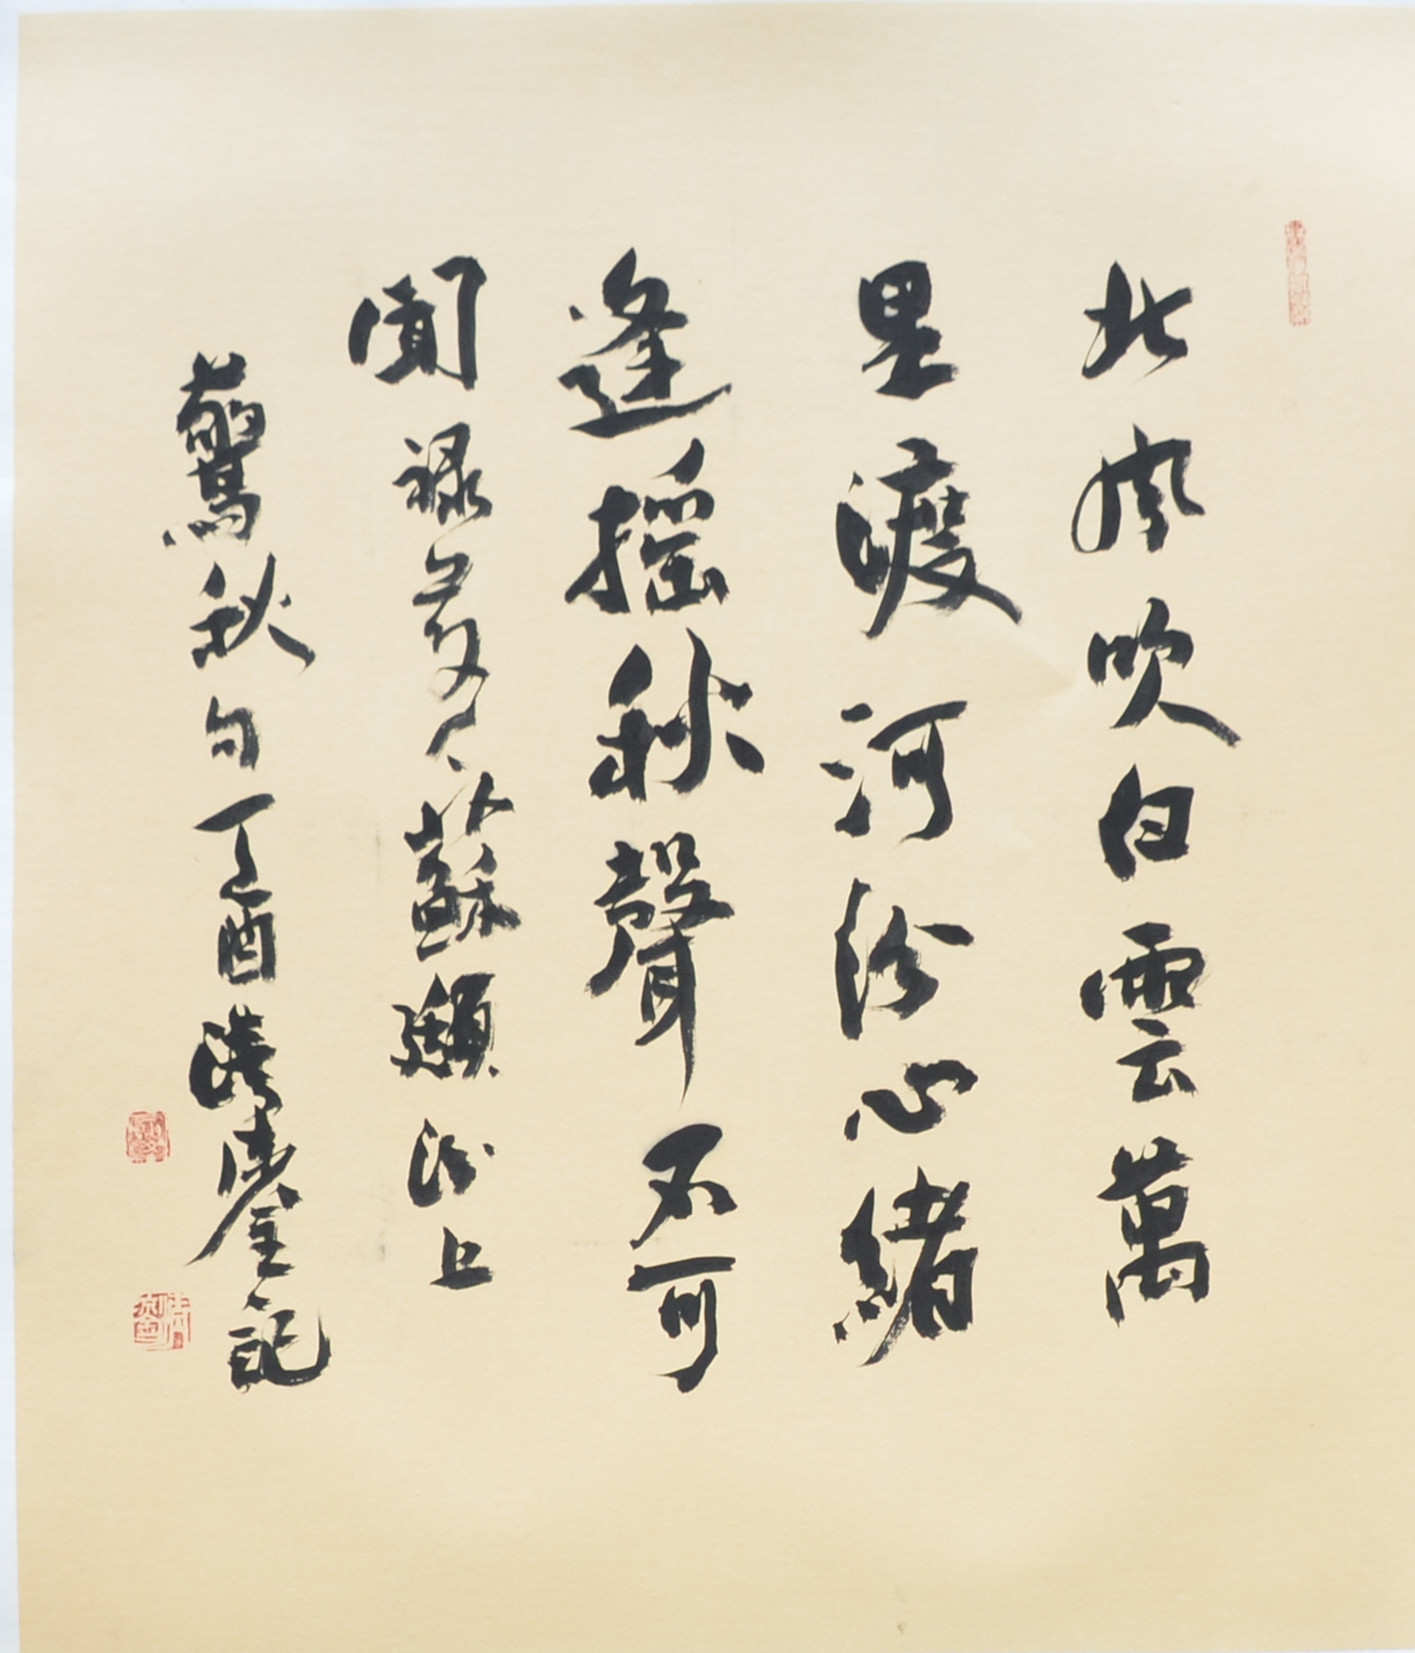 北風吹白雲萬
里渡河汾心緒
逢摇秋聲不可
聞 蘇頲汾上
驚秋句丁酉 記